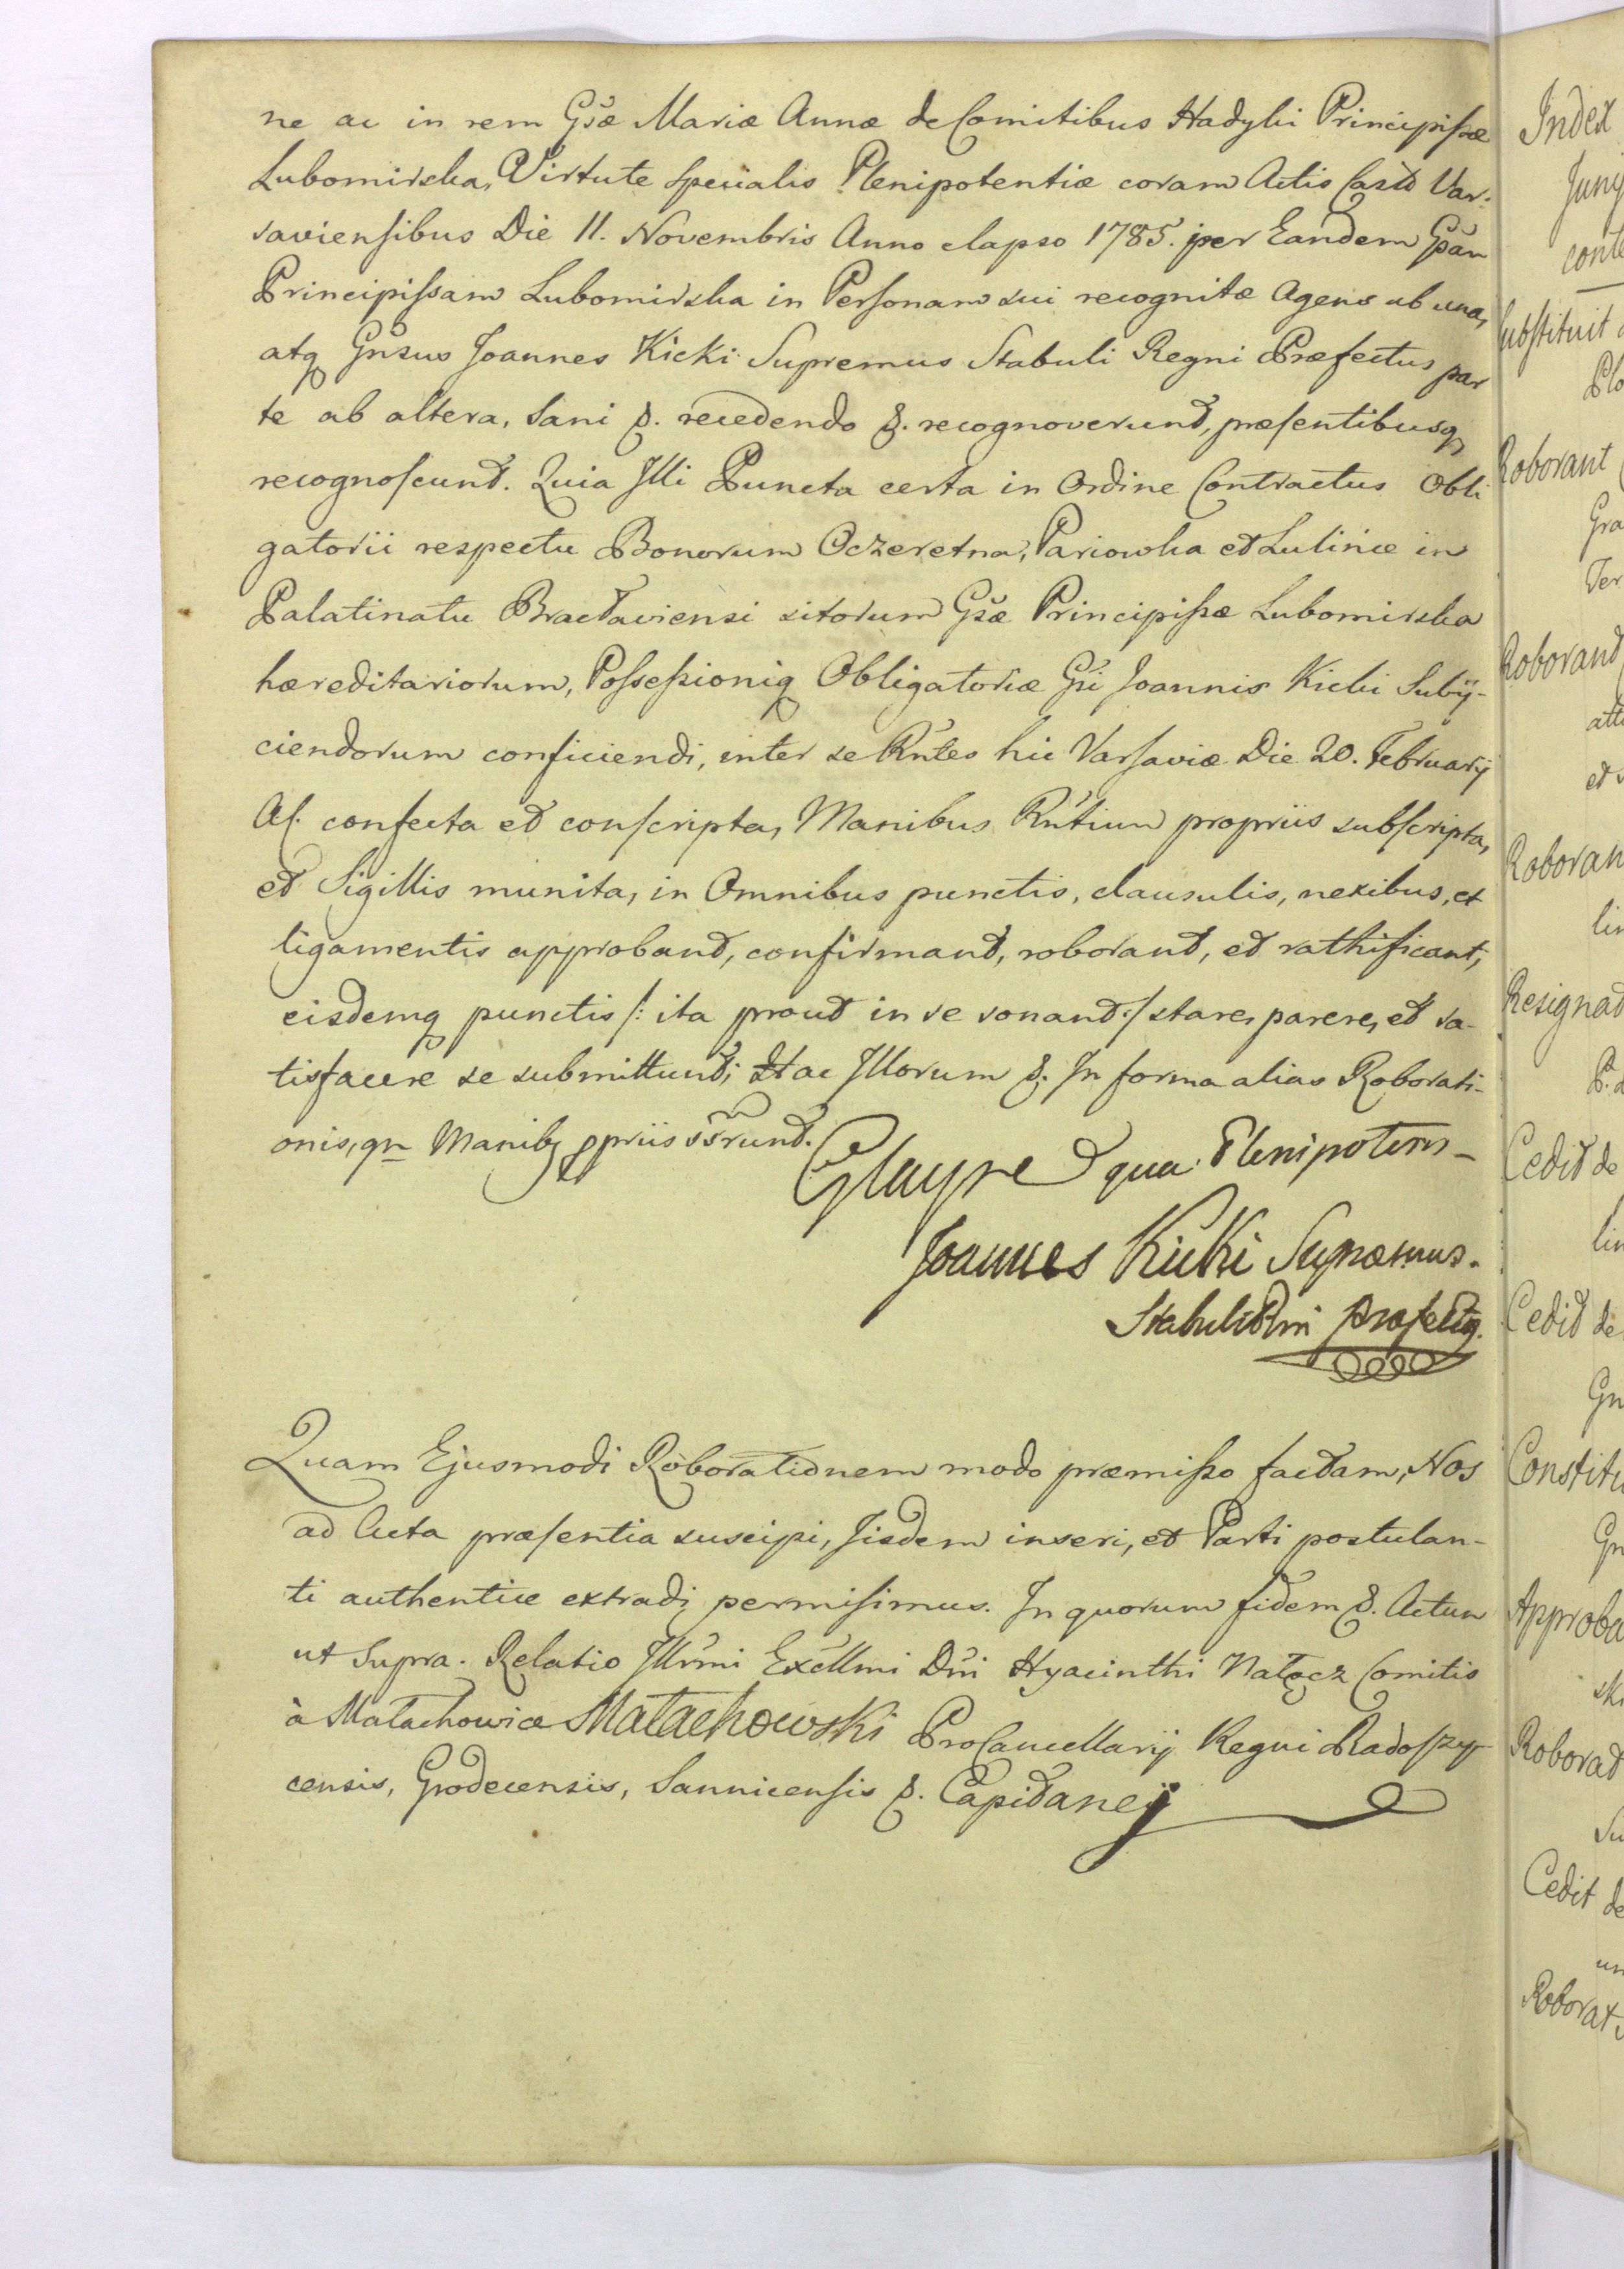 ne ac in rem Gsæ Mariæ Annæ de Comitibus Hadyki Principißæ
Lubomirska, Virtute specialis Plenipotentiæ coram Actis Castr Var-
saviensibus Die 11. Novembris Anno elapso 1785. per Eandem Gsan
Principissam Lubomirska in Personam sui recognitæ Agens ab una,
atq Gnsus Joannes Kicki Supremus Stabuli Regni Præfectus par
te ab altera, Sani &. recedendo &. recognoverunt, præsentibusq
recognoscunt. Quia Illi Puncta certa in Ordine Contractus Obli
gatorii respectu Bonorum Oczeretna, Pariowka et Lulince in
Palatinatu Bractaviensi sitorum Gsæ Principißæ Lubomirska
hæreditariorum, Possessioniq Obligatoriæ Gsi Joannis Kicki Subij-
ciendorum conficiendi, inter se Rntes hic Varsaviæ Die 20. Februarij
A(. confecta et conscripta, Manibus Rntium propriis subscripta,
et Sigillis munita, in Omnibus punctis, clausulis, nexibus, et
ligamentis approbant, confirmant, roborant, et rathificant,
eisdemq punctis /: ita prout in se sonant :/ stare, parere, et sa-
tisfacere se submittunt; Hac Illorum &. In forma alias Roborati-
onis, qn Manibq ppriis ssrunt.
Glayre qua Plenipotens
Joannes Kicki Supræmus.
Stabuli Rni Præfectq.
Quam Ejusmodi Roborationem modo præmisso factam, Nos
ad Acta præsentia suscipi, Iisdem inseri, et Parti postulan-
ti authentice extradi permisimus. In quorum fidem &. Actum
ut Supra. Relatio Illrmi Excllmi Dni Hyacinthi Nałęcz Comitis
à Małachowice Małachowski ProCancellarij Regni Radoszy-
censis, Grodecensis, Sannicensis &. Capitaney
Index
Junij
conte
Substituit
Plo
Roborant
Gra
Ter
Roborant
atte
et
Roboran
lin
Resignat
Cedit de
lin
Cedit de
Gn
Constitu
Gn
Approba
ski
Roborat
Su
Cedit de
un
Roborat